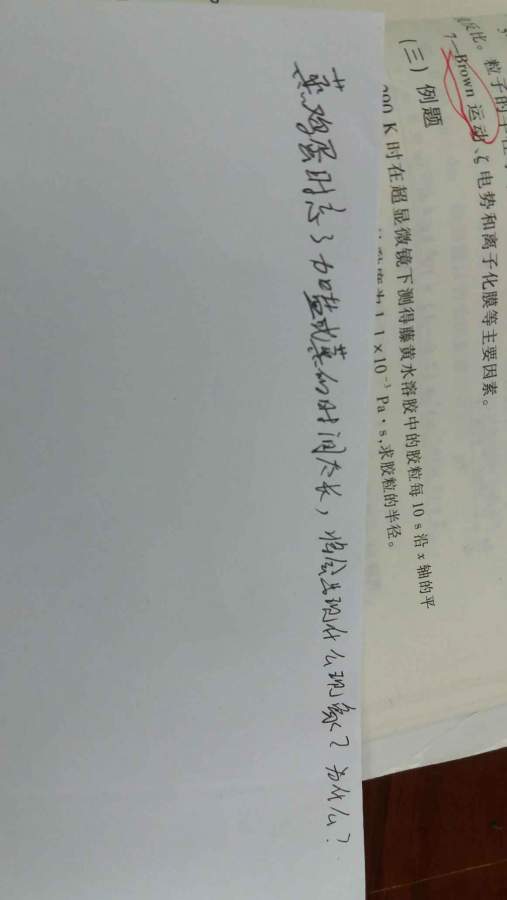 粒子的半径
7—Brown 运动、ζ电势和离子化膜等主要因素。
(三) 例题
时在超显微镜下测得藤黄水溶胶中的胶粒每 10 s 沿 x 轴的平
1.1×10⁻³ Pa·s,求胶粒的半径。
蒸鸡蛋时忘了加盐或蒸的时间太长，将会出现什么现象？为什么？